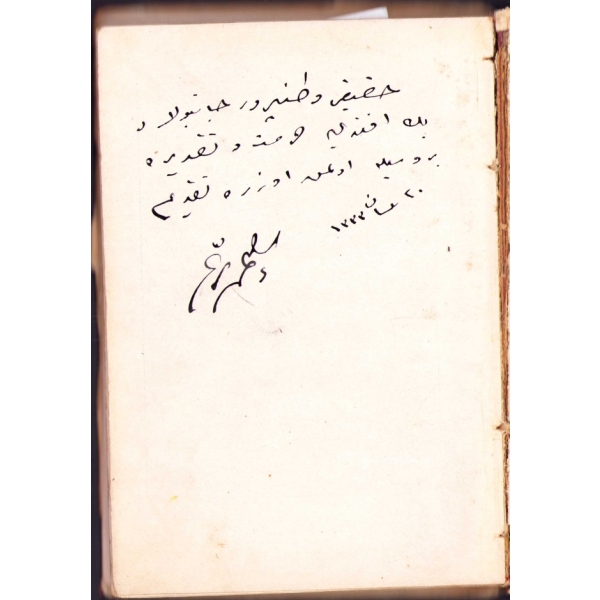 حقیقی وطنپرور جانبولاد
بك افندی یه حرمت و تقدیره
بر وسیله اولمق اوزره تقدیم
٢٠ نیسان ١٣٣٣